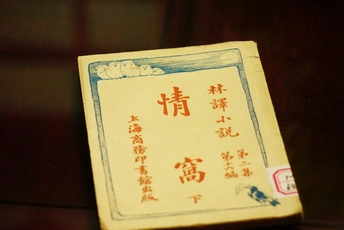 林譯小説
第二集
第十六編
情窩
下
上海商務印書館出版